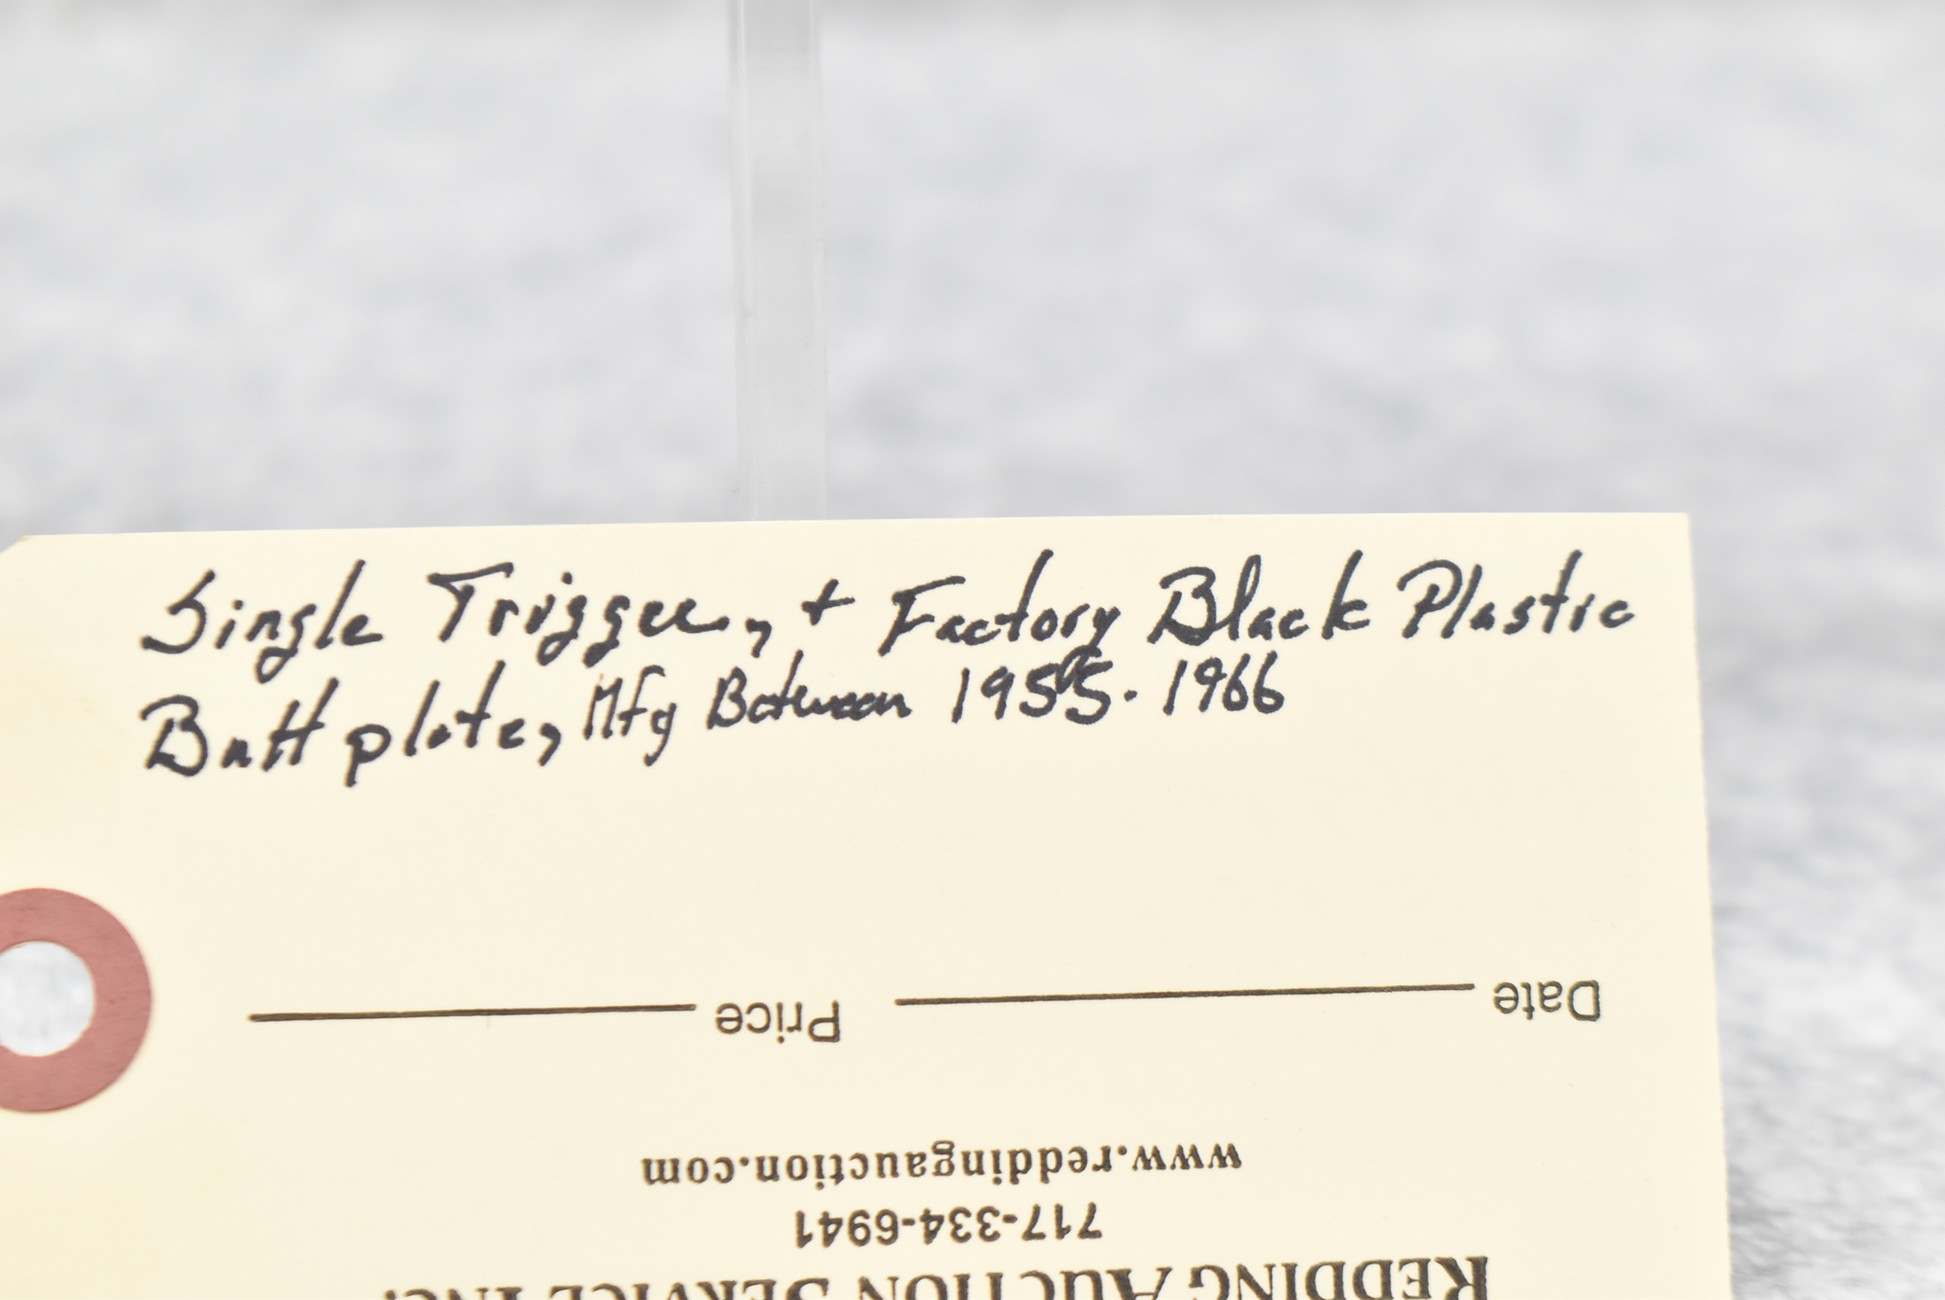 Single Trigger, + Factory Black Plastic
Butt plate, Mfg Between 1955-1966
Date
Price
www.reddingauction.com
717-334-6941
REDDING AUCTION SERVICE INC.